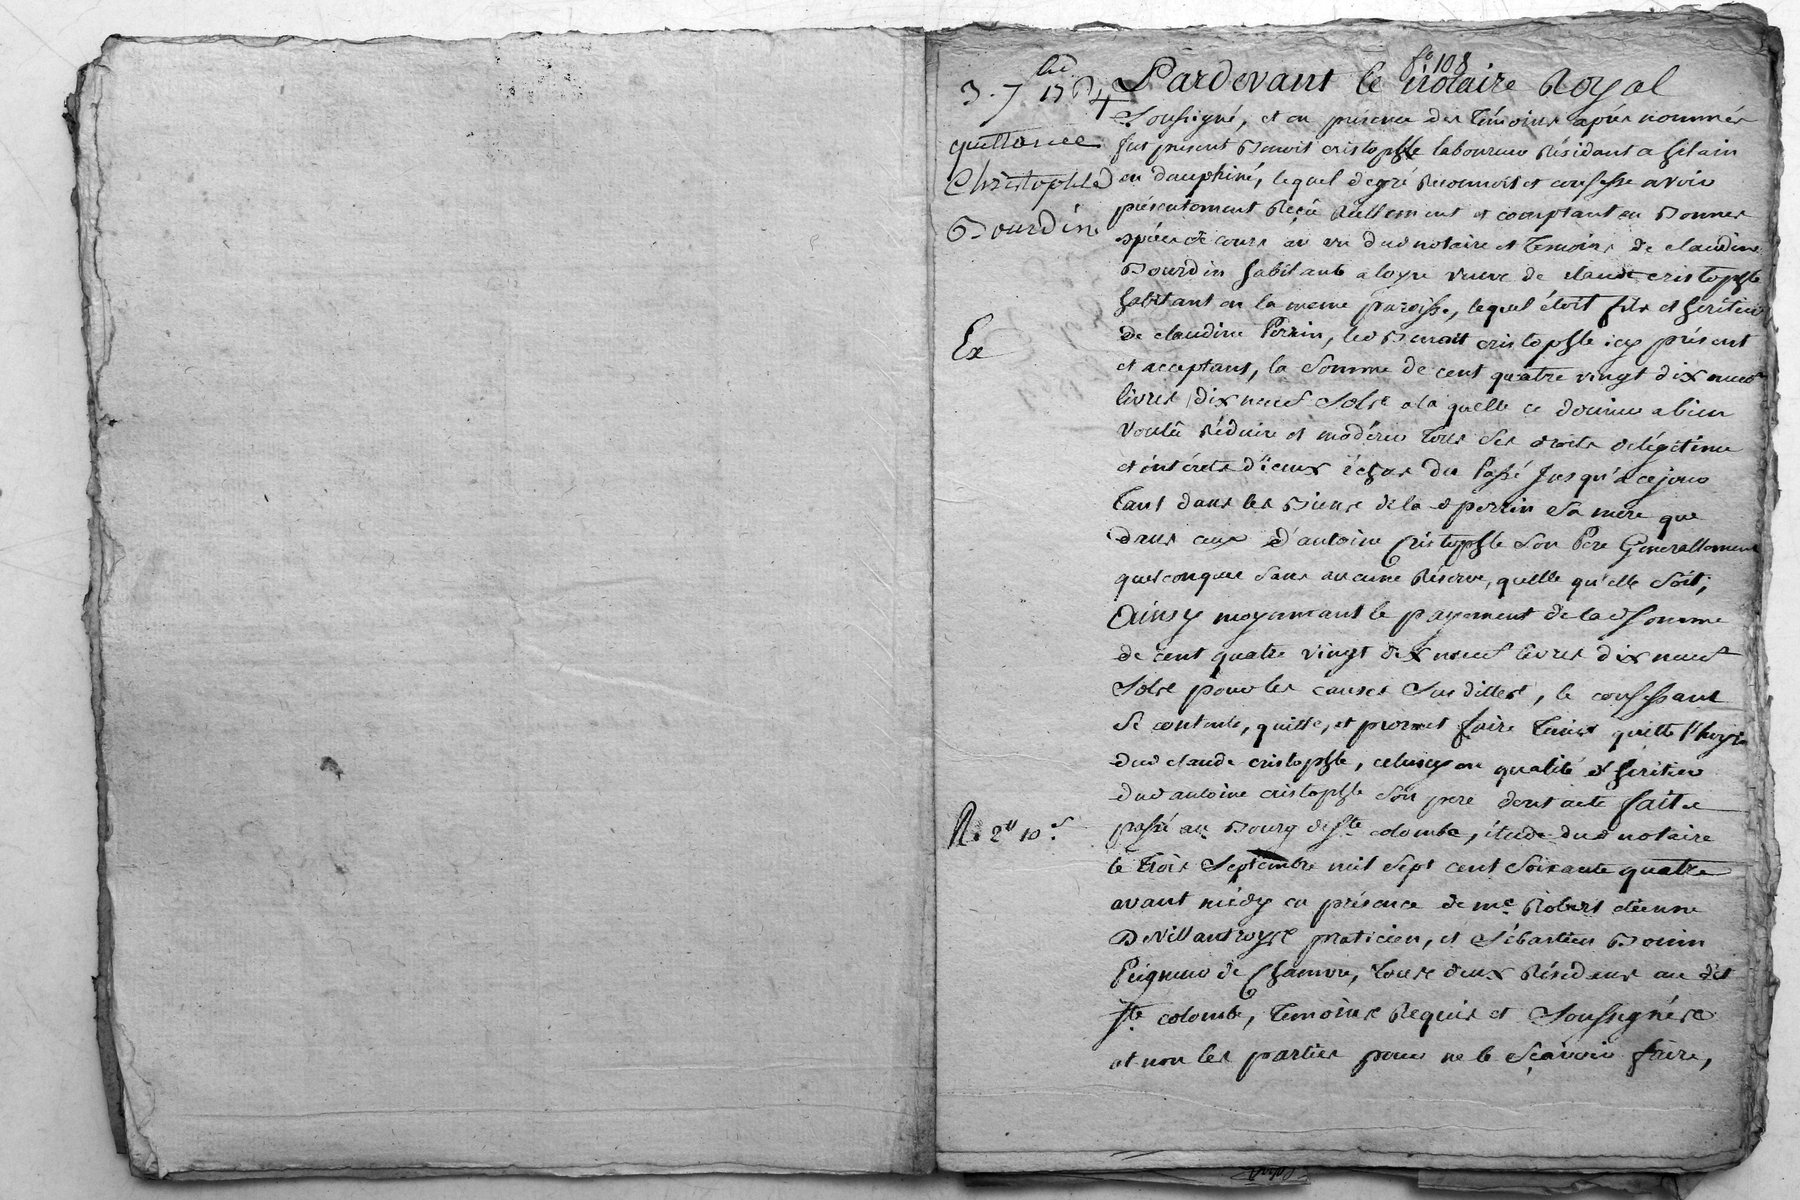 fo 108
3. 7bre 1764
quittance
Christophle
Bourdin
Ex
R. 2# 10s.
Pardevant le notaire Royal
Soussigné, et en présence des témoins après nommés
fut présent Benoit cristophle laboureur Résidant a
en dauphiné, lequel degré Reconnoit et confesse avoir
présentement Reçû Réellement et comptant en Bonnes
espèces de cours au vu dud notaire et temoins de claudine
Bourdin habitante a loyre veuve de claude cristophle
habitant en la meme paroisse, lequel étoit fils et héritier
de claudine Perrin, led Benoit cristophle icy présent
et acceptant, la Somme de cent quatre vingt dix neuf
livres dix neuf Sols a la quelle ce dernier a bien
Voulû Réduire et modérer tous ses droits delégitime
et intérets d'iceux échus du Passé Jusqu'a cejour
tant dans les Biens de la d perrin Sa mère que
dans ceux d'antoine Cristophle Son Pere Generallement
quelconques Sans aucune Réserve, quelle qu'elle Soit;
Ainsy moyennant le payement de lad Somme
de cent quatre vingt dix neuf livres dix neuf
Sols pour les causes Sus dittes, le confessant
Se contente, quitte, et promet faire tenir quitte l'hoyrie
dud claude cristophle, celuicy en qualité d'heritier
dud antoine cristophle Son pere dont acte fait et
passé au Bourg de Ste colombe, étude dud notaire
le trois Septembre mil Sept cent Soixante quatre
avant midy en présence de me Robert etienne
DeVillantroys praticien, et Sébastien Bonin
Peigneur de Chanvre, tous deux Résidens au dit
Ste colombe, temoins Requis et Soussignés
et non les parties pour ne le Sçavoir faire,